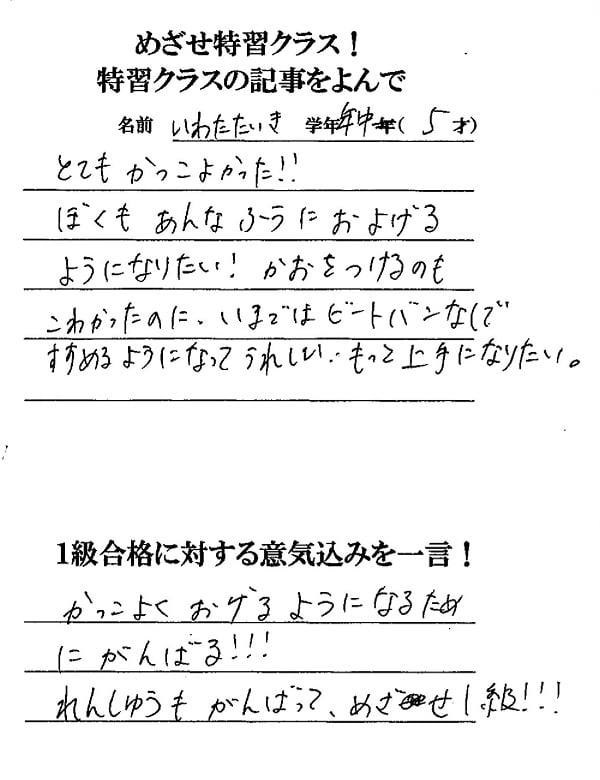 めざせ特習クラス！
特習クラスの記事をよんで
名前 いわたたいき 学年 年中 年( 5 才)
とても かっこよかった!!
ぼくも あんな ふうに およげる
ようになりたい! かおをつけるのも
こわかったのに、いまではビートバンなしで
すすめるようになって うれしい。もっと上手になりたい。
1級合格に対する意気込みを一言！
かっこよく おげる ようになるため
に がんばる!!!
れんしゅうも がんばって、めざせ1級!!!